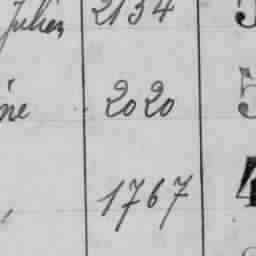 Julien 2134 5
ne 2020 5
1767 4